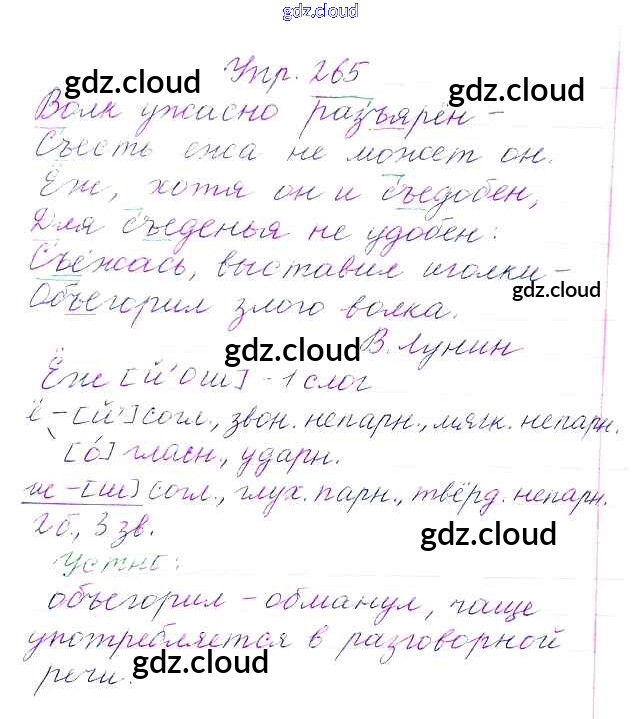 gdz.cloud
Упр. 265
gdz.cloud
gdz.cloud
Волк ужасно разъярён -
Съесть ежа не может он.
Ёж, хотя он и съедобен,
Для съеденья не удобен:
Съёжась, выставил иголки -
gdz.cloud
Объегорил злого волка.
gdz.cloud
В. Лунин
Ёж [й'Ош] - 1 слог
gdz.cloud
ё - [й'] согл., звон. непарн., мягк. непарн.
[о́] гласн., ударн.
ж - [ш] согл., глух. парн., твёрд. непарн.
2 б., 3 зв.
gdz.cloud
Устно:
объегорил - обманул, чаще
употребляется в разговорной
gdz.cloud
речи.